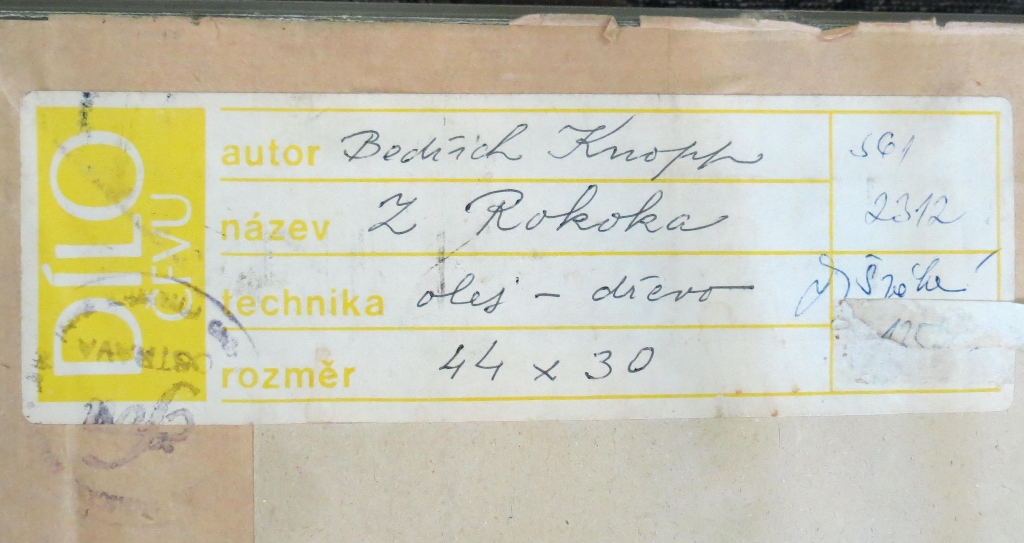 DÍLO
ČFVU
autor Bedřich Knopp
název Z Rokoka
technika olej - dřevo
rozměr 44 x 30
2312
OSTRAVA